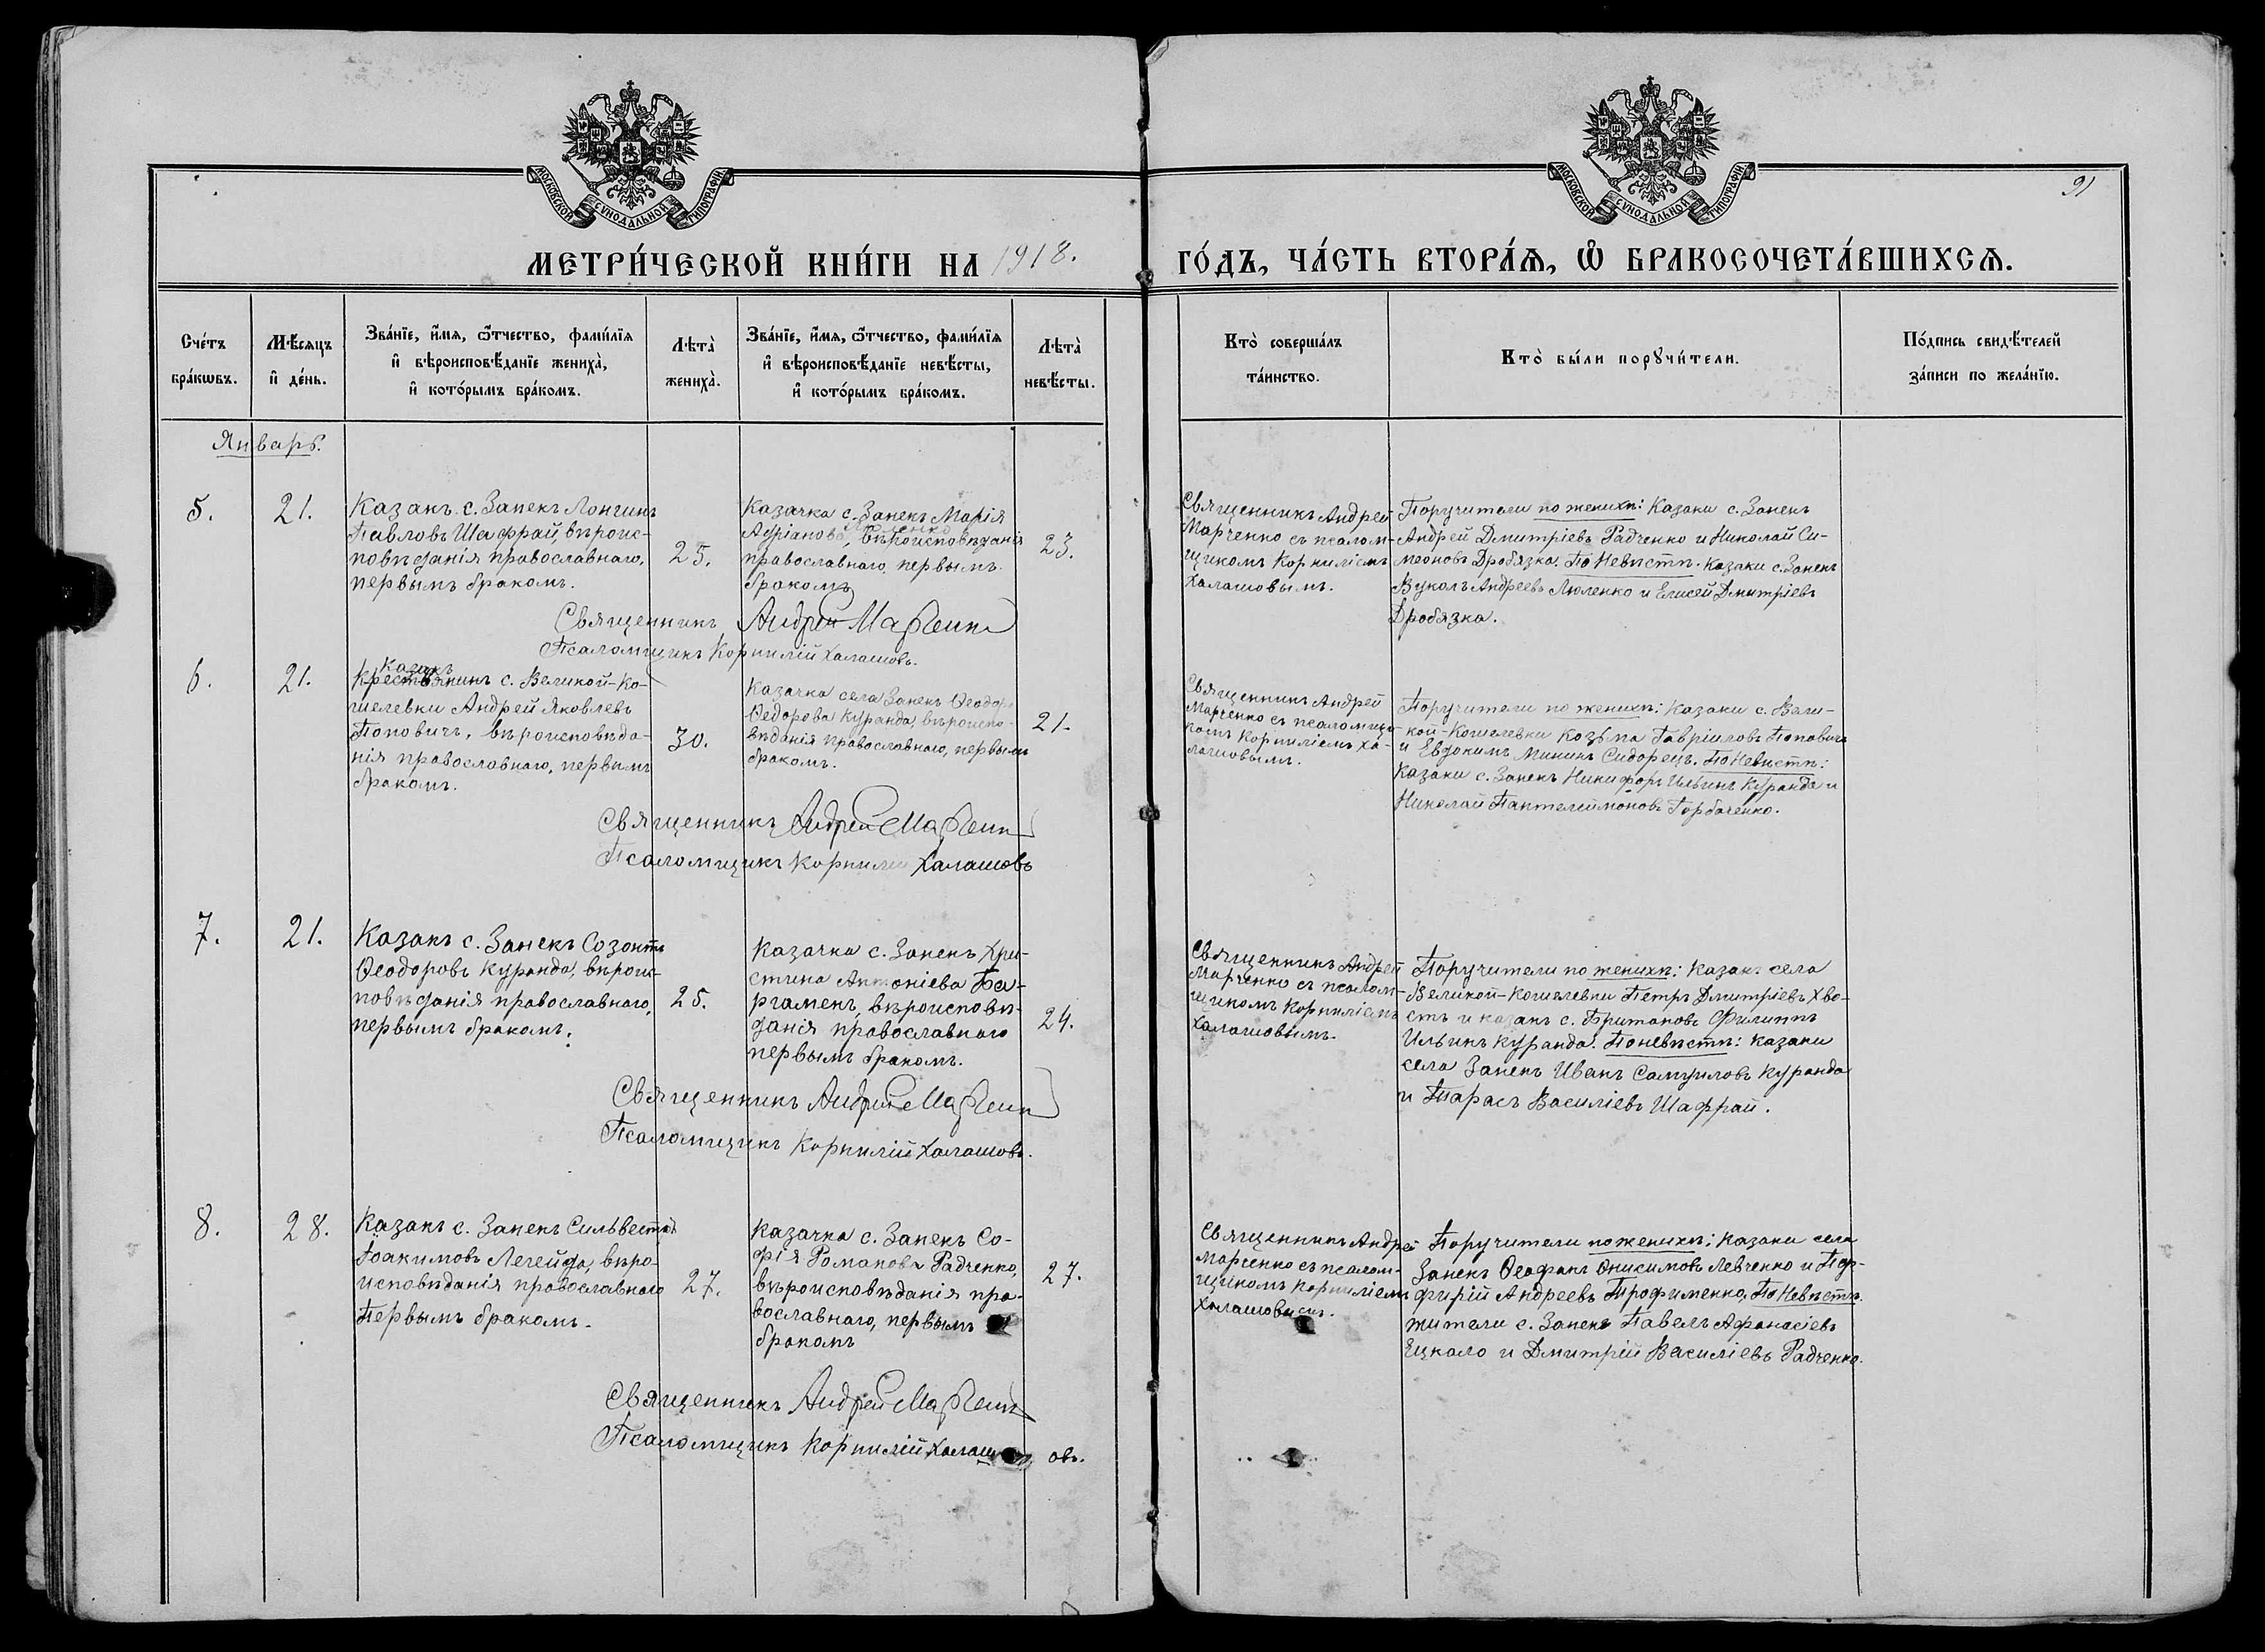 91
МОСКОВСКОЙ СѴНОДАЛЬНОЙ ТИПОГРАФІИ
МОСКОВСКОЙ СѴНОДАЛЬНОЙ ТИПОГРАФІИ
МЕТРИ́ЧЕСКОЙ КНИ́ГИ НА 1918.
ГО́ДЪ, ЧА́СТЬ ВТОРА́Ѧ, Ѽ БРАКОСОЧЕТА́ВШИХСѦ.
Сче́тъ
бра́кѡвъ.
Мѣ́сяцъ
и҆ де́нь.
Зва́нїе, и҆́мѧ, ѻ҆́тчество, фами́лїѧ
и҆ вѣроисповѣ́данїе жениха̀,
и҆ кото́рымъ бра́комъ.
Лѣта̀
жениха̀.
Зва́нїе, и҆́мѧ, ѻ҆́тчество, фами́лїѧ
и҆ вѣроисповѣ́данїе невѣ́сты,
и҆ кото́рымъ бра́комъ.
Лѣта̀
невѣ́сты.
Кто̀ соверша́лъ
та́инство.
Кто̀ бы́ли порꙋчи́тели.
По́дпись свидѣ́телей
за́писи по жела́нїю.
Январь.
5.
21.
Казакъ с. Запекъ Лонгинъ
Павловъ Шафрай, вѣроис-
повѣданія православнаго,
первымъ бракомъ.
25.
Казачка с. Запекъ Марія
Адріанова, вѣроисповѣданія
православнаго, первымъ
бракомъ
23.
Священникъ Андрей
Марченко съ псалом-
щикомъ Корниліемъ
Халашовымъ.
Поручители по женихѣ: Казаки с. Запекъ
Андрей Дмитріевъ Радченко и Николай Си-
меоновъ Дробязка. По Невѣстѣ. Казаки с. Запекъ
Вуколъ Андреевъ Люленко и Елисей Дмитріевъ
Дробязка.
Священникъ Андрей Марченко
Псаломщикъ Корнилій Халашовъ.
6.
21.
Казакъ
Крестьянинъ с. Великой-Ко-
шелевки Андрей Яковлевъ
Поповичъ, вѣроисповѣда-
нія православнаго, первымъ
бракомъ.
30.
Казачка села Запекъ Ѳеодора
Ѳедорова Куранда, вѣроиспо-
вѣданія православнаго, первымъ
бракомъ.
21.
Священникъ Андрей
Марченко съ псаломщи-
комъ Корниліемъ Ха-
лашовымъ.
Поручители по женихѣ: Казаки с. Вели-
кой-Кошелевки Козьма Гавріиловъ Поповичъ
и Евдокимъ Мининъ Сидорецъ. По Невѣстѣ:
Казаки с. Запекъ Никифоръ Ильинъ Куранда и
Николай Пантелеймоновъ Горбаченко.
Священникъ Андрей Марченко
Псаломщикъ Корнилій Халашовъ
7.
21.
Казакъ с. Запекъ Созонтъ
Ѳеодоровъ Куранда, вѣроис-
повѣданія православнаго,
первымъ бракомъ.
25.
Казачка с. Запекъ Хри-
стина Антоніева Па-
ргаменъ, вѣроисповѣ-
данія православнаго
первымъ бракомъ.
24.
Священникъ Андрей
Марченко съ псалом-
щикомъ Корниліемъ
Халашовымъ.
Поручители по женихѣ: Казакъ села
Великой-Кошелевки Петръ Дмитріевъ Хво-
стъ и казакъ с. Британовъ Филиппъ
Ильинъ Куранда. По невѣстѣ: казаки
села Запекъ Иванъ Самуиловъ Куранда
и Тарасъ Василіевъ Шафрай.
Священникъ Андрей Марченко
Псаломщикъ Корнилій Халашовъ.
8.
28.
Казакъ с. Запекъ Сильвестръ
Іоакимовъ Легейда, вѣро-
исповѣданія православнаго
Первымъ бракомъ.
27.
Казачка с. Запекъ Со-
фія Романова Радченко,
вѣроисповѣданія пра-
вославнаго, первымъ
бракомъ
27.
Священникъ Андрей
Марченко съ псалом-
щикомъ Корниліемъ
Халашовымъ.
Поручители по женихѣ: Казаки села
Запекъ Ѳеофанъ Онисимовъ Левченко и Пор-
фирій Андреевъ Трофименко, По Невѣстѣ.
жители с. Запекъ Павелъ Афанасіевъ
Ецкало и Дмитрій Василіевъ Радченко.
Священникъ Андрей Марченко
Псаломщикъ Корнилій Халашовъ.